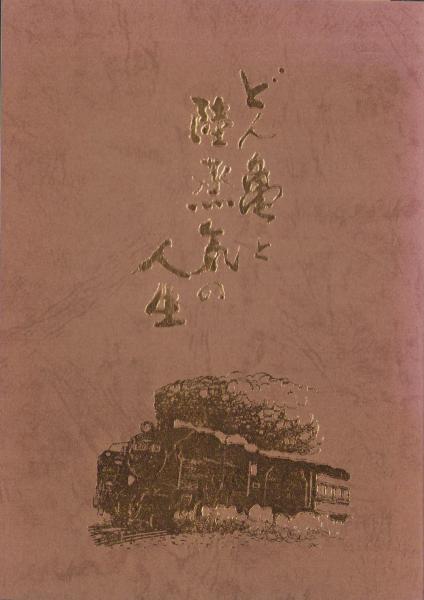 どん亀と
陸蒸気の
人生